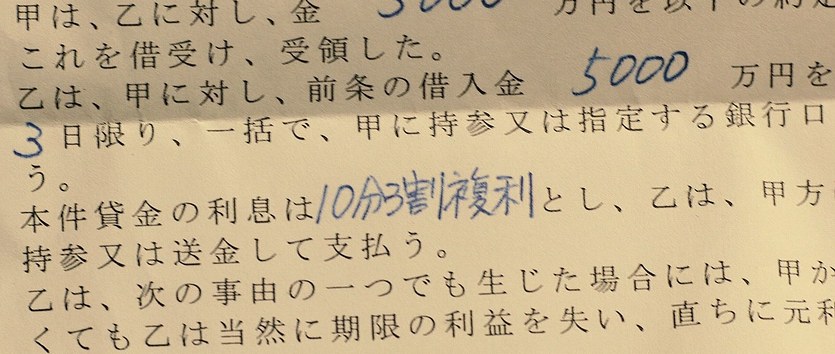 甲は、乙に対し、金 5000 万円を以下の約定
これを借受け、受領した。
乙は、甲に対し、前条の借入金 5000 万円を
3日限り、一括で、甲に持参又は指定する銀行口
う。
本件貸金の利息は10分3割複利とし、乙は、甲方
持参又は送金して支払う。
乙は、次の事由の一つでも生じた場合には、甲か
くても乙は当然に期限の利益を失い、直ちに元利